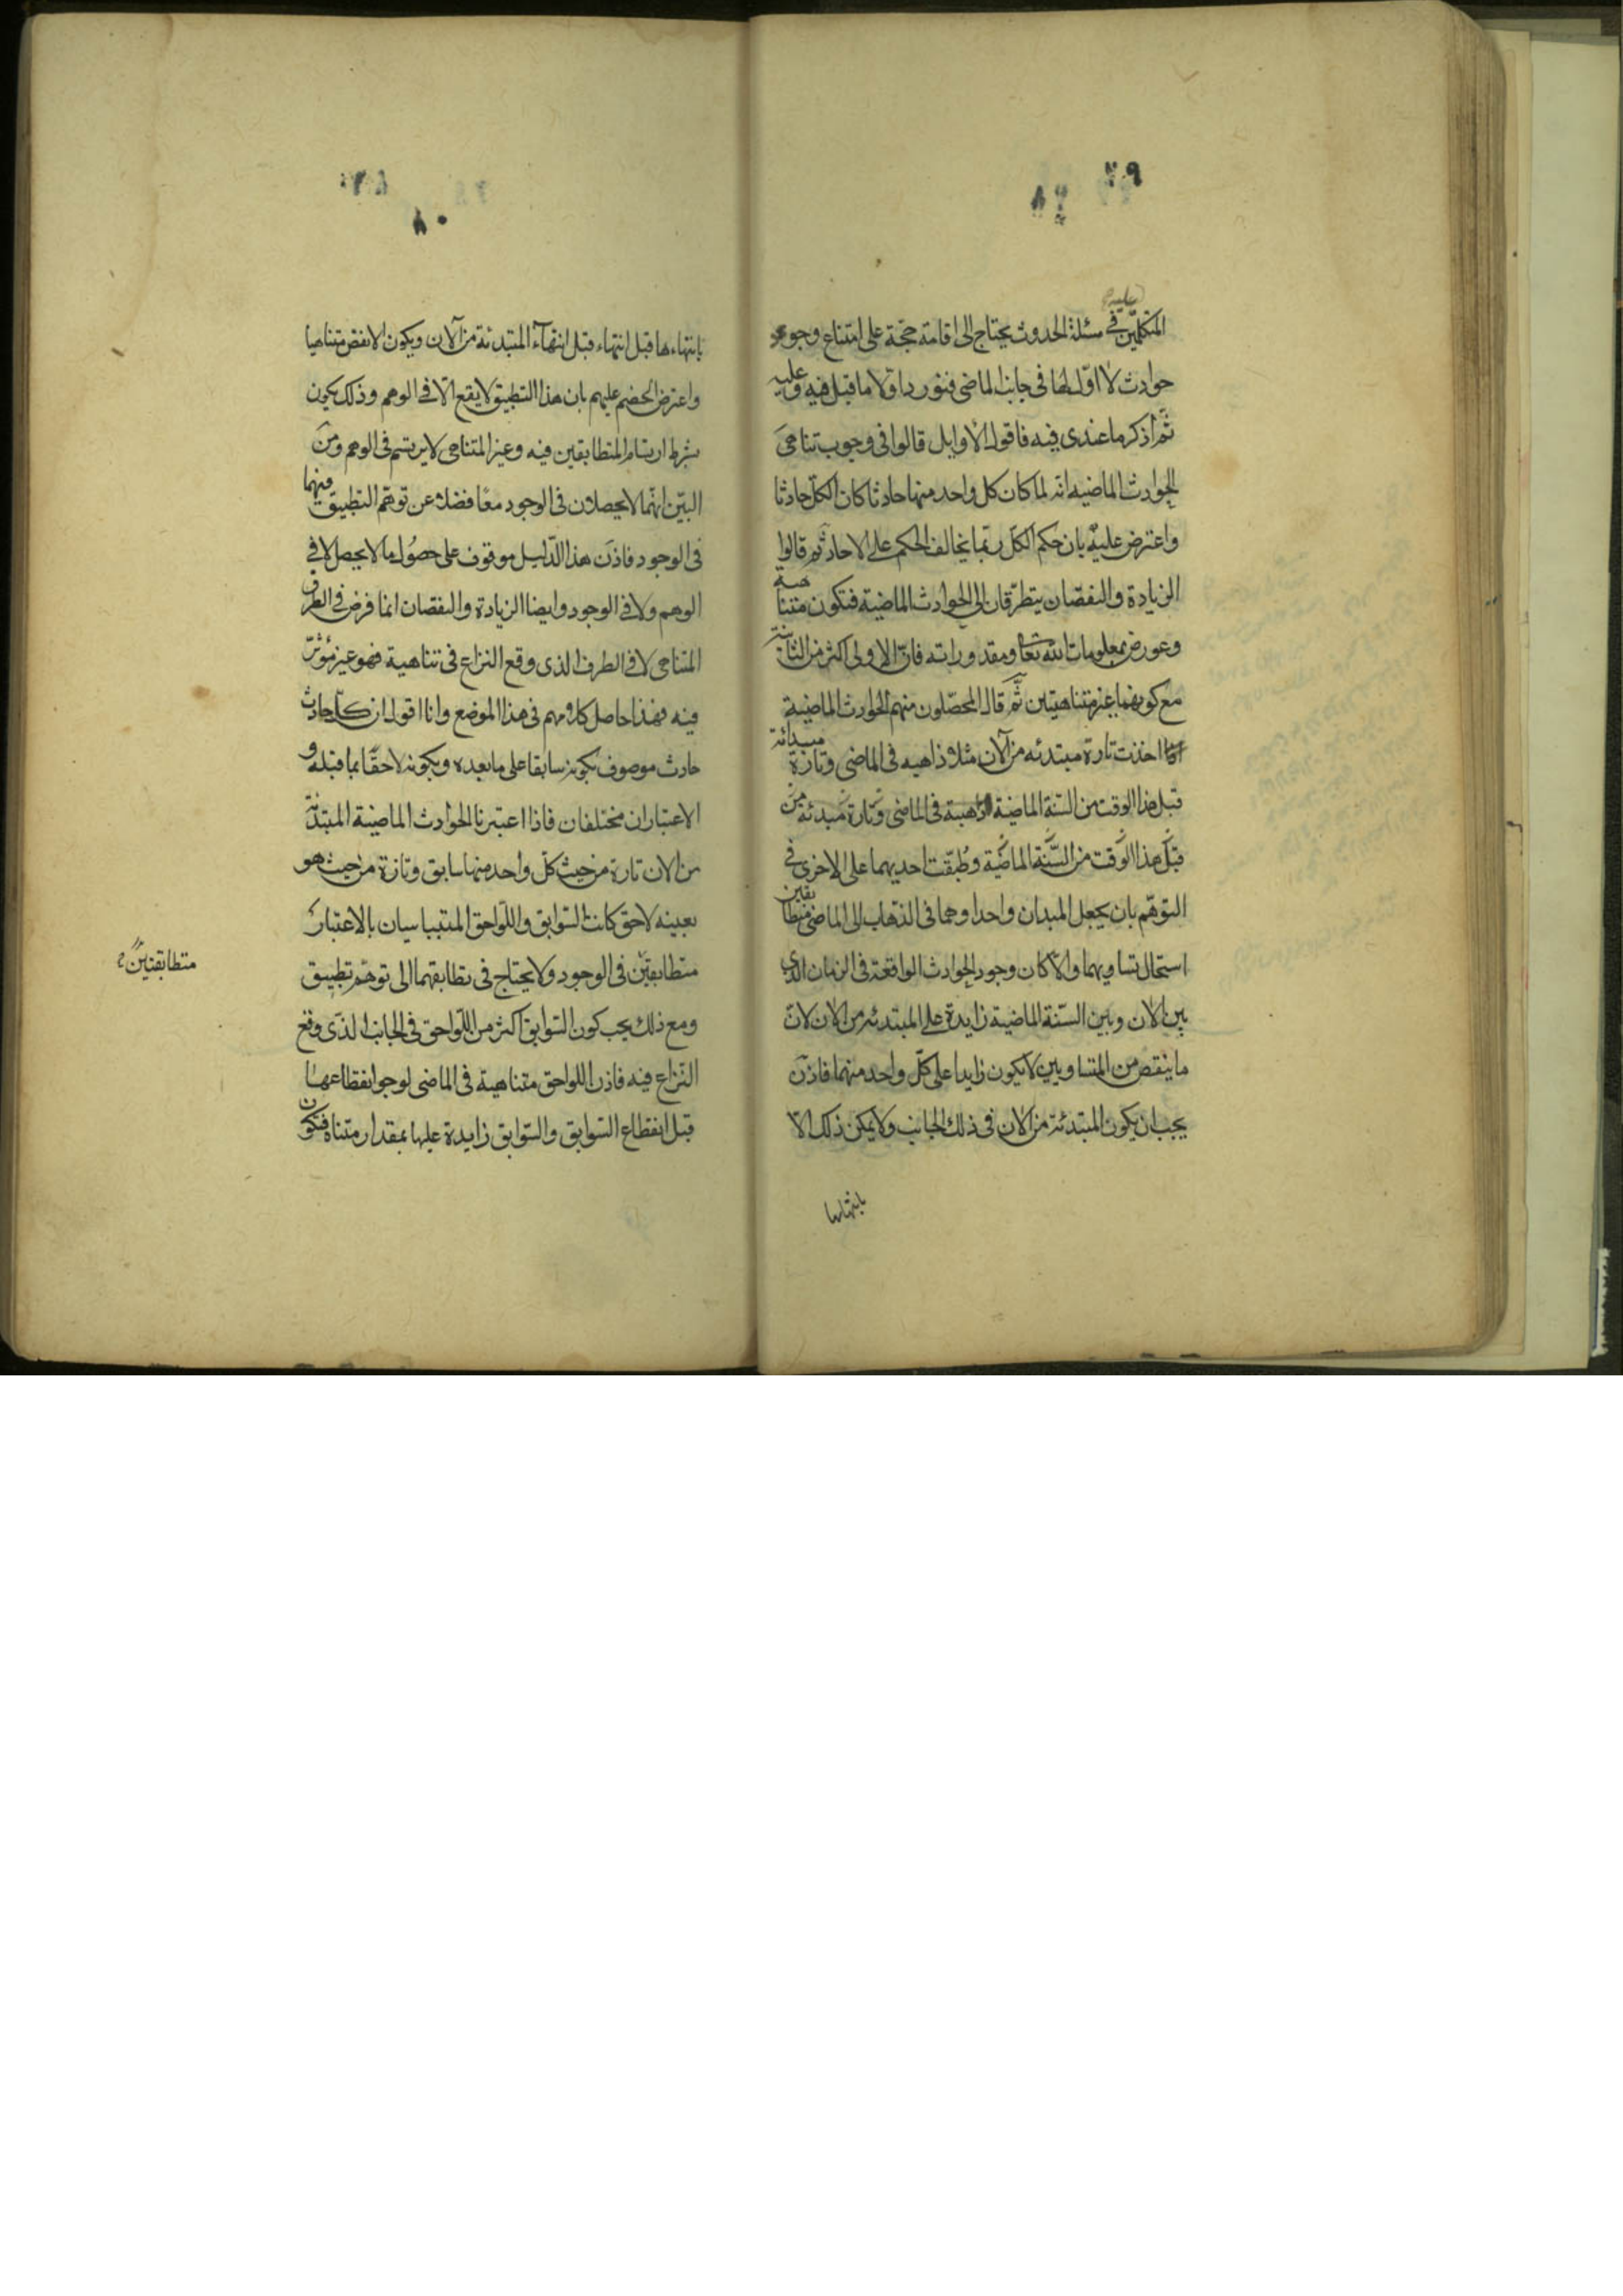 ٧٩
٧٩
المتكلمين في مسئلة الحدوث يحتاج الى اقامة حجة على امتناع وجود
حوادث لا اول لها في جانب الماضي فنورد اولا ما قيل فيه وعليه
ثم اذكر ما عندي فيه فاقول الاوايل قالوا في وجوب تناهي
الحوادث الماضيه انه لما كان كل واحد منها حادثا كان الكل حادثا
واعترض عليه بان حكم الكل ربما يخالف الحكم على الاحاد ثم قالوا
الزيادة والنقصان يتطرقان الى الحوادث الماضية فتكون متناهية
وعورض بمعلومات الله تعا ومقدوراته فان الاولى اكثر من الثانية
مع كونهما غير متناهيتين ثم قال المحصلون منهم الحوادث الماضية
اذا اخذت تارة مبتدئه من الآن مثلا ذاهبه في الماضي وتارة مبتدائة
قبل هذا الوقت من السنة الماضية ذاهبة في الماضي وتارة مبدئة من
قبل هذا الوقت من السنة الماضية وطبقت احديهما على الاخرى في
التوهم بان يجعل المبدان واحدا وهما في الذهاب الى الماضي متطابقين
استحال تساويهما والا كان وجود الحوادث الواقعة في الزمان الذي
بين الان وبين السنة الماضية زايدة على المبتدئه من الان لان
ما ينقص من المتساويين لا يكون زايدا على كل واحد منهما فاذن
يجب ان يكون المبتدئة من الان في ذلك الجانب ولا يمكن ذلك الا
بانتهاءها
٨٠
بانتهاءها قبل انتهاء قبل انتهآء المبتدئة من الآن ويكون الانقص متناهيا
واعترض الخصم عليهم بان هذا التطبيق لا يقع الا في الوهم وذلك يكون
بشرط ارتسام المتطابقين فيه وغير المتناهي لا يرتسم في الوهم ومن
البين انهما لا يحصلان في الوجود معا فضلا عن توهم التطبيق فيهما
في الوجود فاذن هذا الدليل موقوف على حصول ما لا يحصل لا في
الوهم ولا في الوجود وايضا الزيادة والنقصان انما فرض في الطرف
المتناهي لا في الطرف الذي وقع النزاع في تناهية فهو غير مؤثر
فيه فهذا حاصل كلامهم في هذا الموضع وانا اقول ان كل حادث
حادث موصوف بكونه سابقا على ما بعده وبكونه لاحقا بما قبله و
الاعتباران مختلفان فاذا اعتبرنا الحوادث الماضية المبتدئة
من الان تارة من حيث كل واحد منها سابق وتارة من حيث هو
بعينه لاحق كانت السوابق واللواحق المتباينان بالاعتبار
متطابقين في الوجود ولا يحتاج في تطابقهما الى توهم تطبيق
متطابقتين
ومع ذلك يجب كون السوابق اكثر من اللواحق في الجانب الذي وقع
النزاع فيه فاذن اللواحق متناهية في الماضي لوجوا نقطاعها
قبل انقطاع السوابق والسوابق زايدة عليها بمقدار متناه فتكون